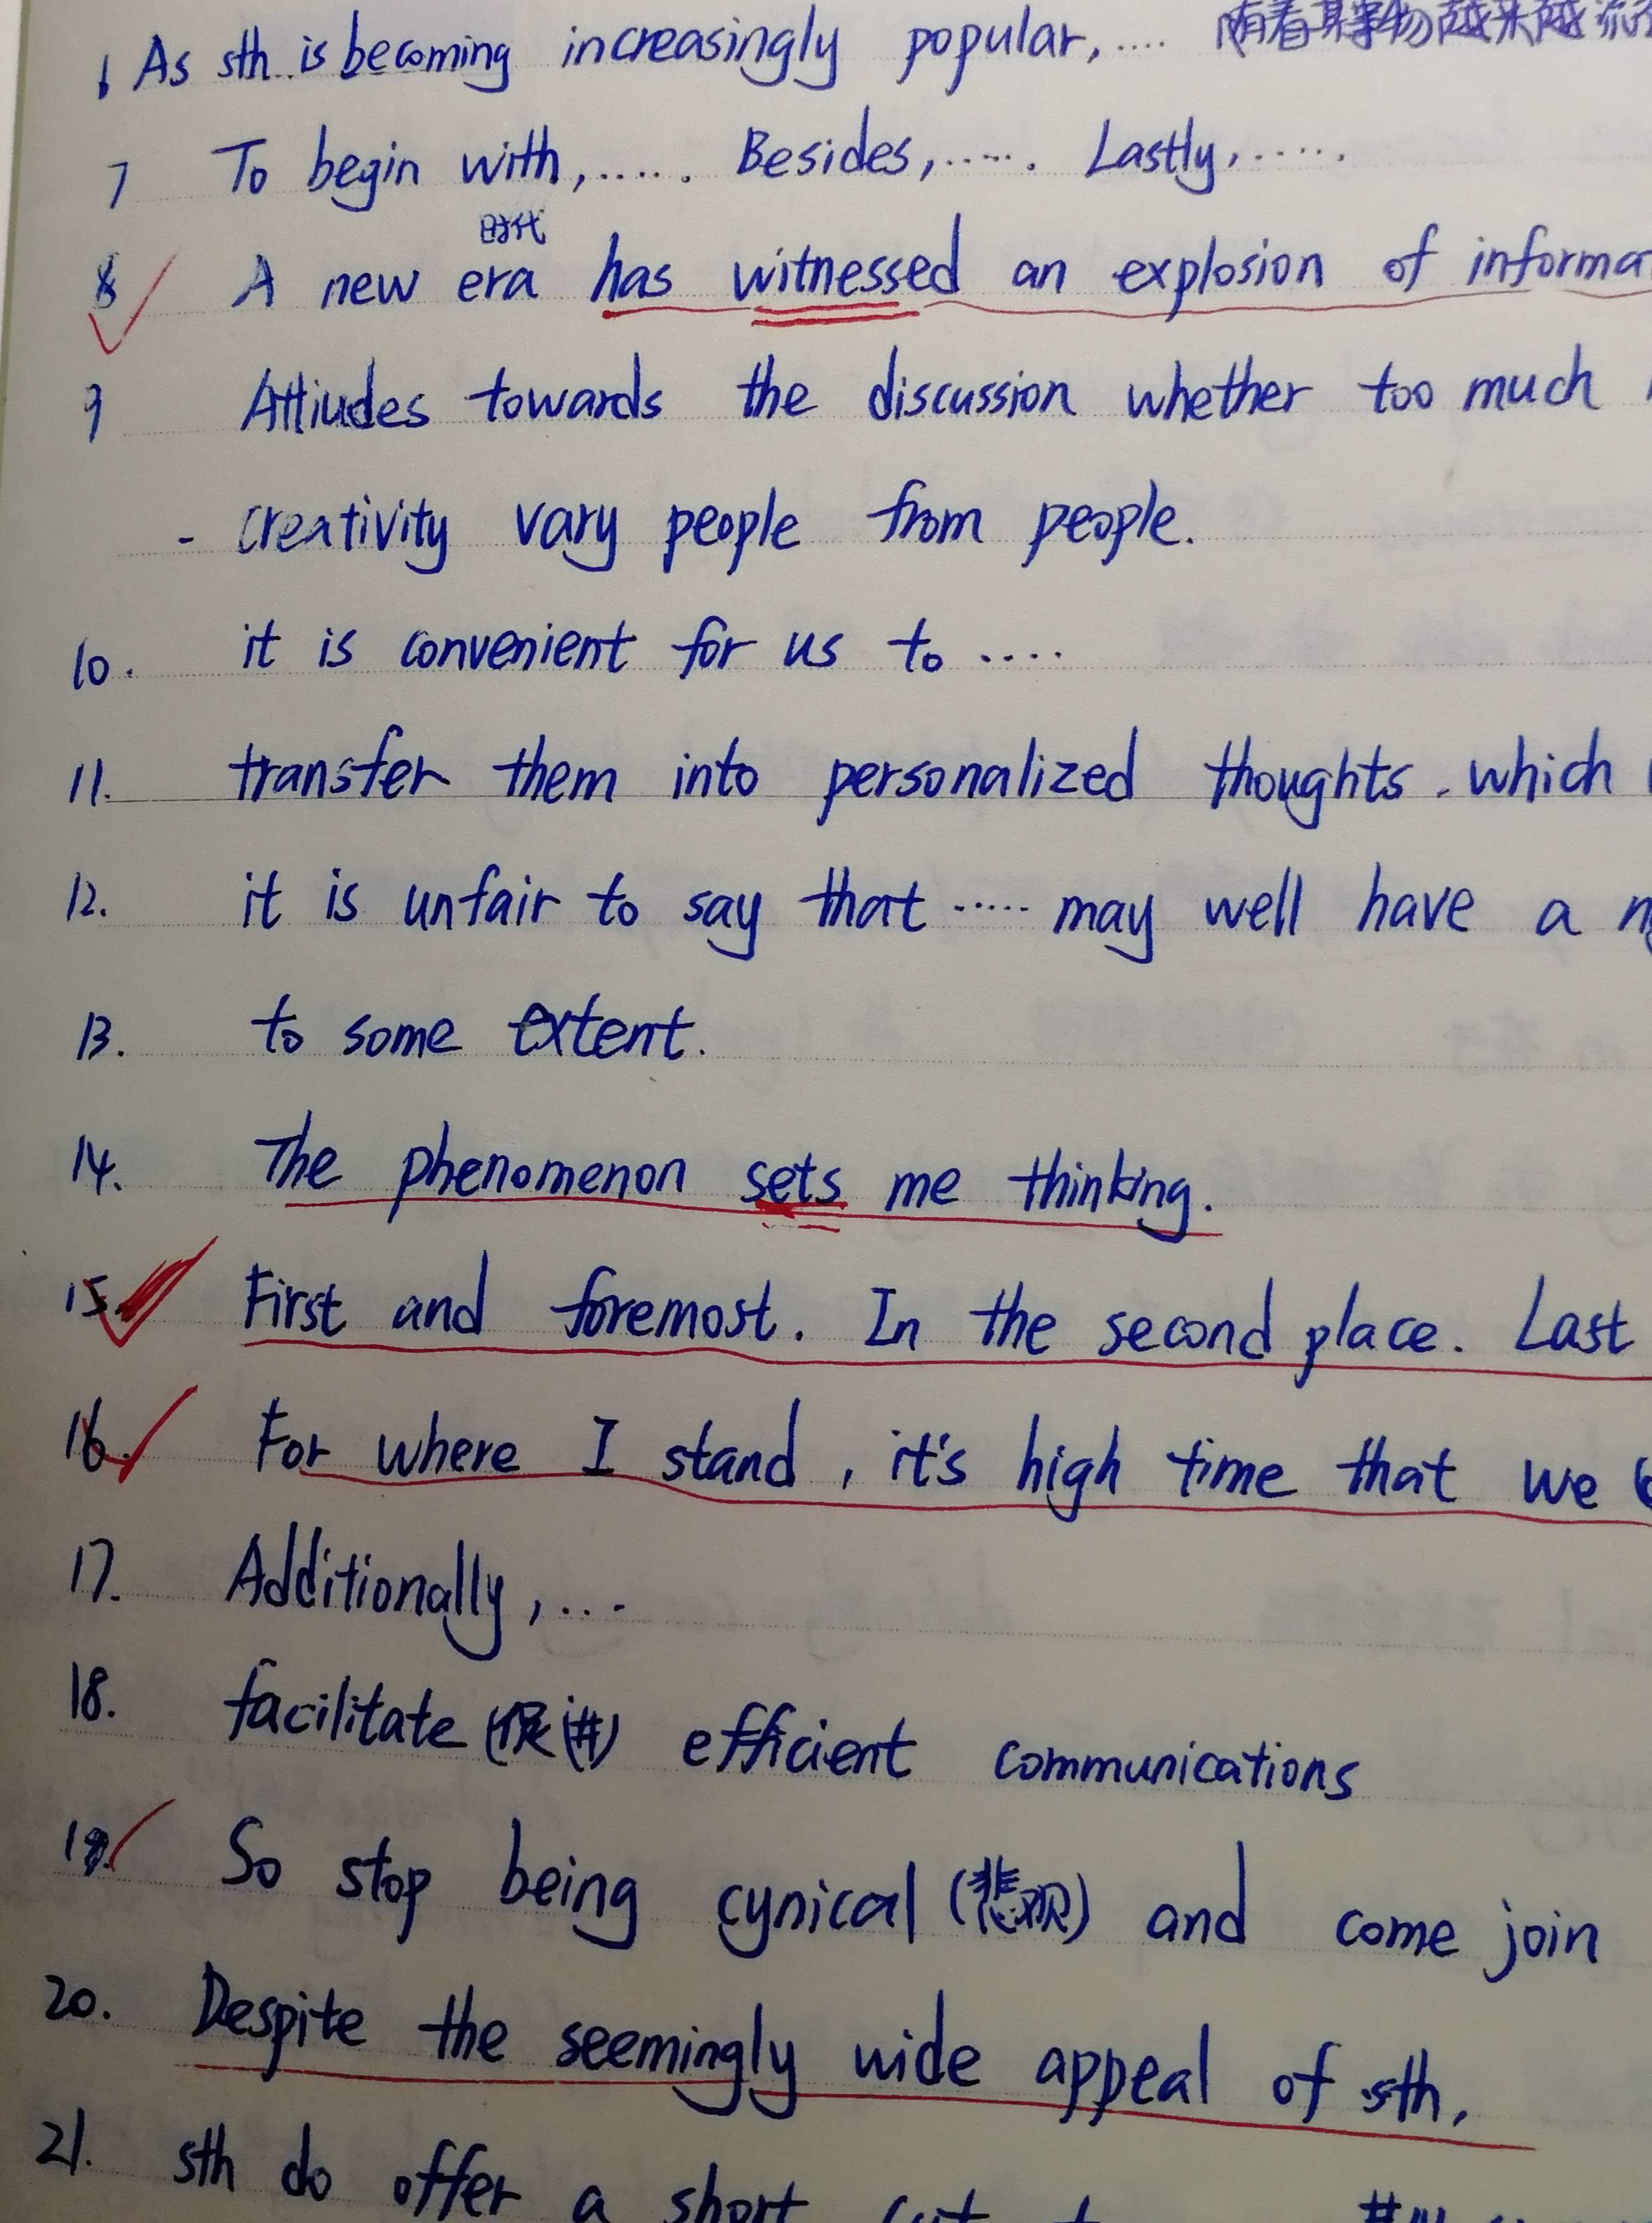 6 As sth is becoming increasingly popular, .... 随着某事物越来越流
7 To begin with, ..... Besides, ..... Lastly, .....
时代
8 A new era has witnessed an explosion of informa
9 Attiudes towards the discussion whether too much
- creativity vary people from people.
10. it is convenient for us to ....
11. transfer them into personalized thoughts, which
12. it is unfair to say that ..... may well have a
13. to some extent.
14. The phenomenon sets me thinking.
15. First and foremost. In the second place. Last
16. For where I stand, it's high time that we
17. Additionally, ...
18. facilitate (促进) efficient communications
19. So stop being cynical (悲观) and come join
20. Despite the seemingly wide appeal of sth,
21. sth do offer a short cut